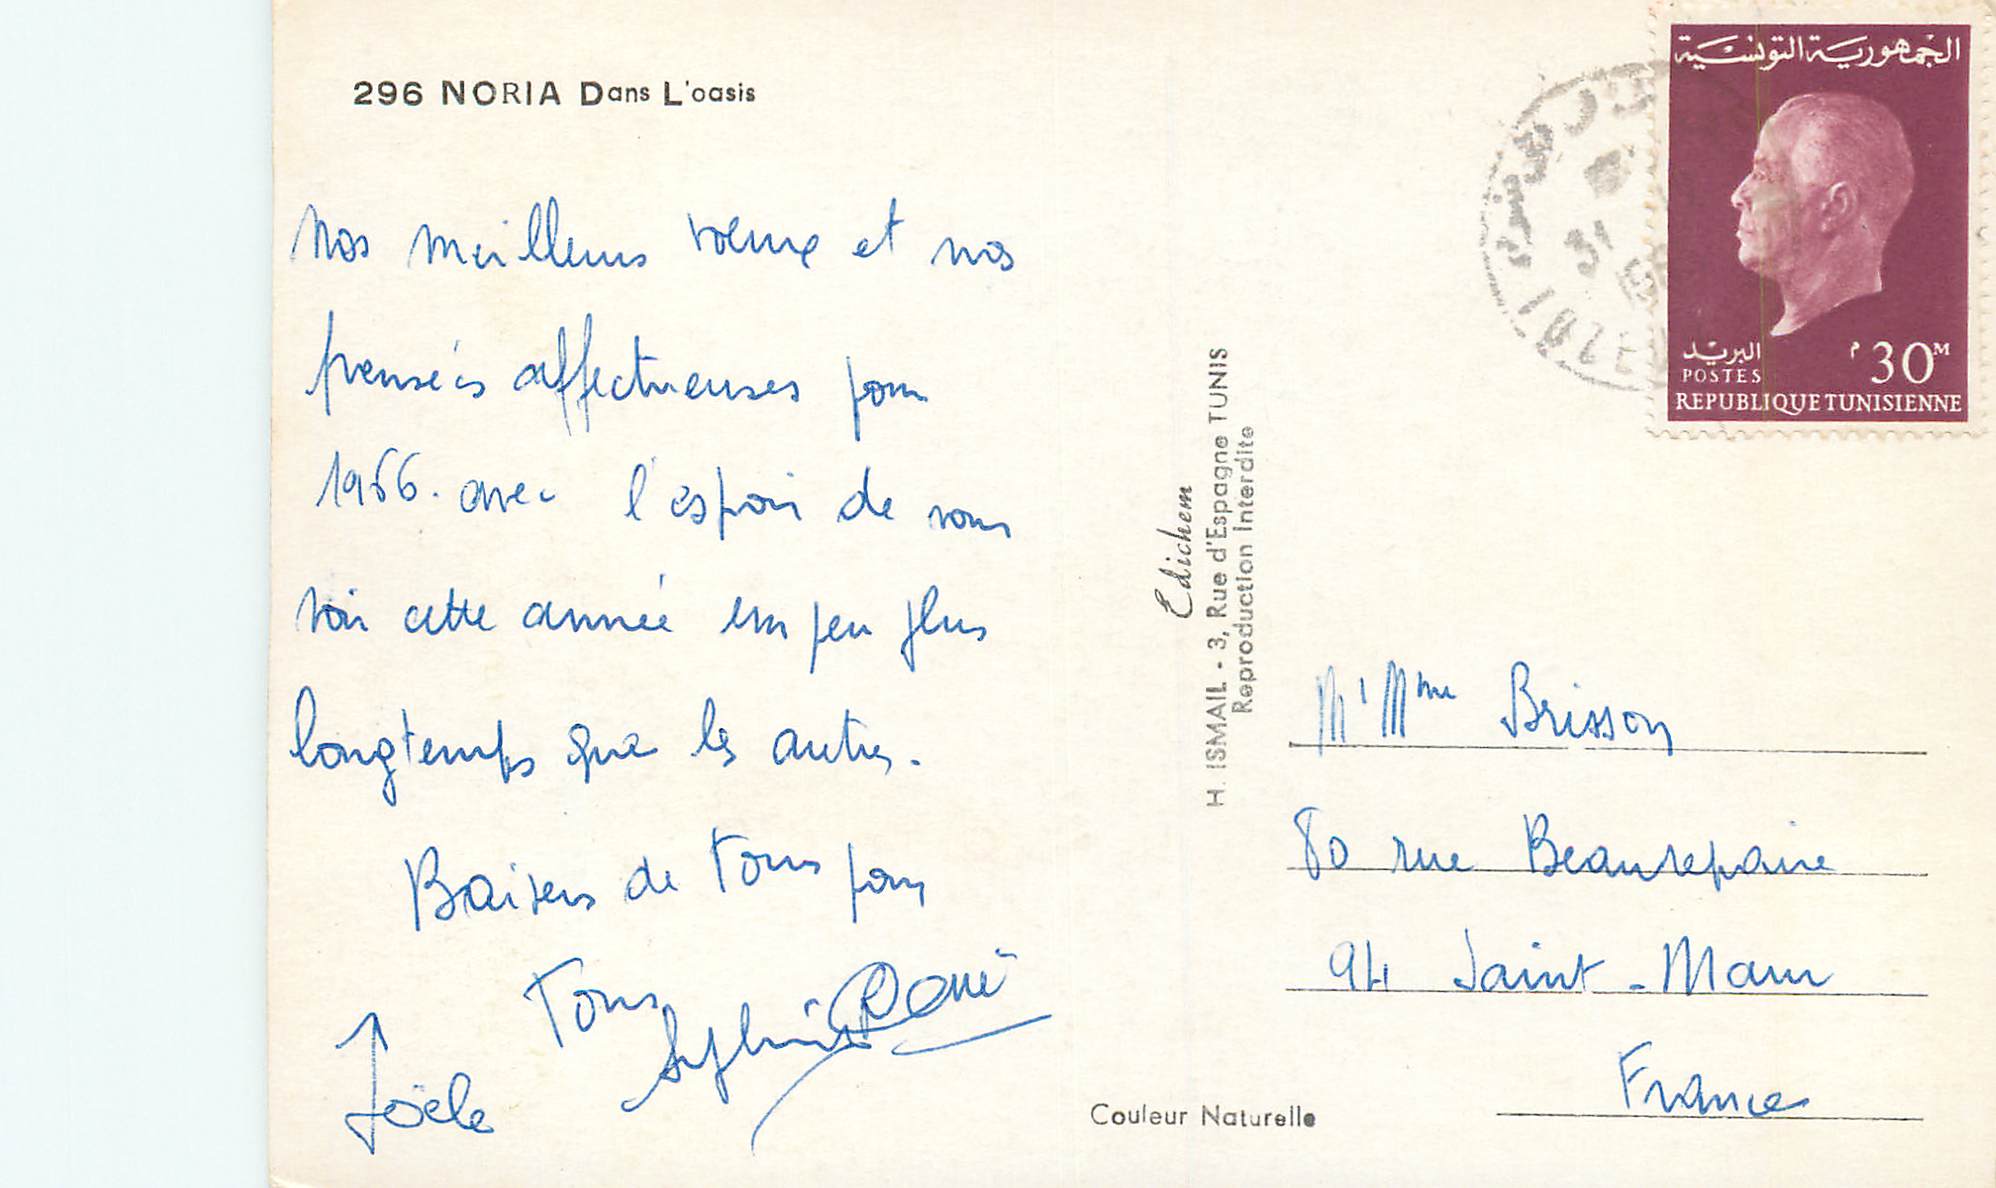 296 NORIA Dans L'oasis
Nos meilleurs voeux et nos
pensées affectueuses pour
1966. avec l'espoir de vous
voir cette année un peu plus
longtemps que les autres.
Baisers de tous pour
Tous
Sylvie René
Joële
Edichem
H. ISMAIL - 3, Rue d'Espagne TUNIS
Reproduction Interdite
Couleur Naturelle
الجمهورية التونسية
البريد
POSTES
م 30M
REPUBLIQUE TUNISIENNE
31
M' Mme Brisson
80 rue Beaurepaire
94 Saint-Maur
France